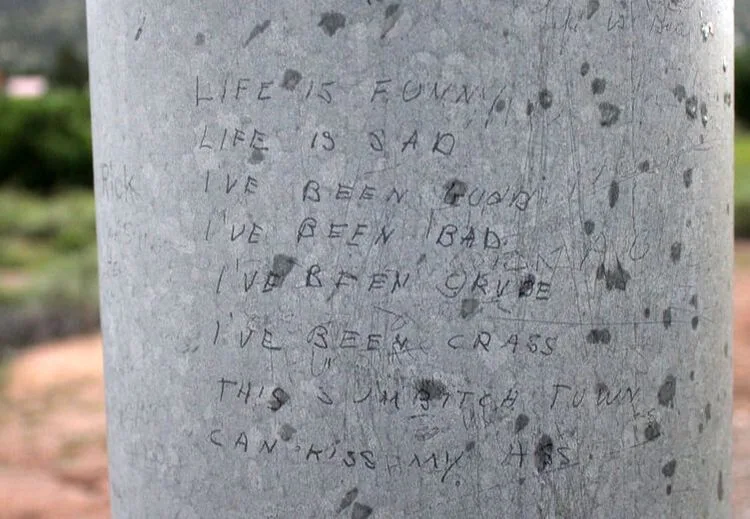 LIFE IS FUNNY
LIFE IS SAD
Rick
I'VE BEEN GOOD
I'VE BEEN BAD.
I'VE BEEN CRUDE
I'VE BEEN CRASS
THIS SUMBITCH TOWN
CAN KISS MY ASS.